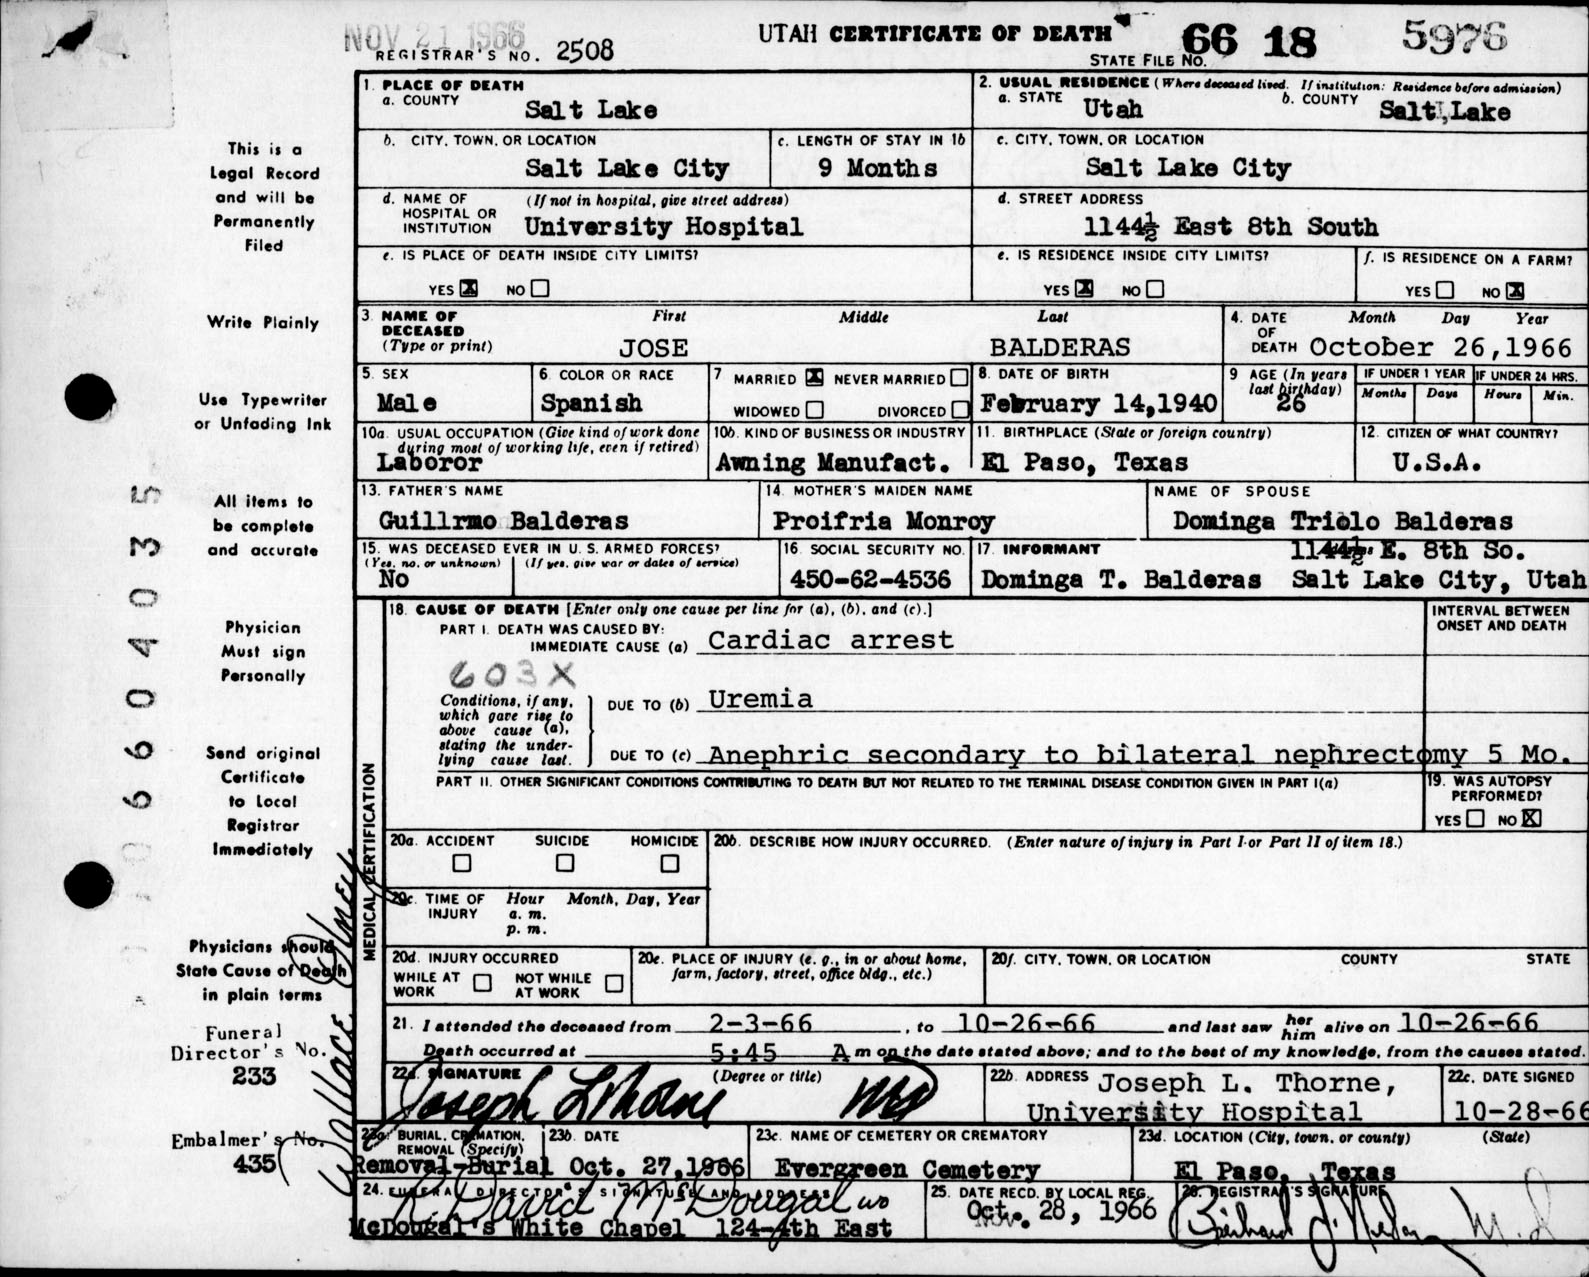 NOV 21 1966
UTAH CERTIFICATE OF DEATH
66 18 5976
REGISTRAR'S NO. 2508
STATE FILE NO.
1. PLACE OF DEATH
a. COUNTY
Salt Lake
2. USUAL RESIDENCE (Where deceased lived. If institution: Residence before admission)
a. STATE Utah b. COUNTY Salt Lake
b. CITY, TOWN, OR LOCATION
Salt Lake City
c. LENGTH OF STAY IN 1b
9 Months
c. CITY, TOWN, OR LOCATION
Salt Lake City
d. NAME OF HOSPITAL OR INSTITUTION (If not in hospital, give street address)
University Hospital
d. STREET ADDRESS
1144½ East 8th South
e. IS PLACE OF DEATH INSIDE CITY LIMITS?
YES X NO
e. IS RESIDENCE INSIDE CITY LIMITS?
YES X NO
f. IS RESIDENCE ON A FARM?
YES NO X
3. NAME OF DECEASED (Type or print)
First Middle Last
JOSE BALDERAS
4. DATE OF DEATH Month Day Year
October 26,1966
5. SEX
Male
6. COLOR OR RACE
Spanish
7 MARRIED X NEVER MARRIED
WIDOWED DIVORCED
8. DATE OF BIRTH
February 14,1940
9 AGE (In years last birthday)
26
IF UNDER 1 YEAR
Months Days
IF UNDER 24 HRS.
Hours Min.
10a. USUAL OCCUPATION (Give kind of work done during most of working life, even if retired)
Laboror
10b. KIND OF BUSINESS OR INDUSTRY
Awning Manufact.
11. BIRTHPLACE (State or foreign country)
El Paso, Texas
12. CITIZEN OF WHAT COUNTRY?
U.S.A.
13. FATHER'S NAME
Guillrmo Balderas
14. MOTHER'S MAIDEN NAME
Proifria Monroy
NAME OF SPOUSE
Dominga Triolo Balderas
15. WAS DECEASED EVER IN U. S. ARMED FORCES?
(Yes, no, or unknown) (If yes, give war or dates of service)
No
16. SOCIAL SECURITY NO.
450-62-4536
17. INFORMANT
1144½ E. 8th So.
Dominga T. Balderas Salt Lake City, Utah
18. CAUSE OF DEATH [Enter only one cause per line for (a), (b), and (c).]
INTERVAL BETWEEN ONSET AND DEATH
PART I. DEATH WAS CAUSED BY:
IMMEDIATE CAUSE (a) Cardiac arrest
603X
Conditions, if any, which gave rise to above cause (a), stating the underlying cause last.
DUE TO (b) Uremia
DUE TO (c) Anephric secondary to bilateral nephrectomy 5 Mo.
PART II. OTHER SIGNIFICANT CONDITIONS CONTRIBUTING TO DEATH BUT NOT RELATED TO THE TERMINAL DISEASE CONDITION GIVEN IN PART I(a)
19. WAS AUTOPSY PERFORMED?
YES NO X
MEDICAL CERTIFICATION
20a. ACCIDENT SUICIDE HOMICIDE
20b. DESCRIBE HOW INJURY OCCURRED. (Enter nature of injury in Part I or Part II of item 18.)
20c. TIME OF INJURY Hour Month, Day, Year
a. m.
p. m.
20d. INJURY OCCURRED
WHILE AT WORK NOT WHILE AT WORK
20e. PLACE OF INJURY (e. g., in or about home, farm, factory, street, office bldg., etc.)
20f. CITY, TOWN, OR LOCATION COUNTY STATE
21. I attended the deceased from 2-3-66, to 10-26-66 and last saw her him alive on 10-26-66
Death occurred at 5:45 A m on the date stated above; and to the best of my knowledge, from the causes stated.
22a. SIGNATURE (Degree or title)
Joseph L Thorne MD
22b. ADDRESS Joseph L. Thorne,
University Hospital
22c. DATE SIGNED
10-28-66
23a. BURIAL, CREMATION, REMOVAL (Specify)
Removal-Burial
23b. DATE
Oct. 27,1966
23c. NAME OF CEMETERY OR CREMATORY
Evergreen Cemetery
23d. LOCATION (City, town, or county) (State)
El Paso, Texas
24. FUNERAL DIRECTOR'S SIGNATURE AND ADDRESS
R. David McDougal
McDougal's White Chapel 124-4th East
25. DATE RECD. BY LOCAL REG.
Oct. 28, 1966
26. REGISTRAR'S SIGNATURE
M.D
This is a
Legal Record
and will be
Permanently
Filed
Write Plainly
Use Typewriter
or Unfading Ink
All items to
be complete
and accurate
Physician
Must sign
Personally
Send original
Certificate
to Local
Registrar
Immediately
Physicians should
State Cause of Death
in plain terms
Funeral
Director's No.
233
Embalmer's No.
435
Wallace
6604035